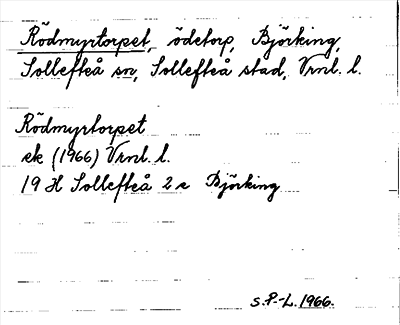 Rödmyrtorpet, ödetorp, Björking,
Sollefteå sn, Sollefteå stad, Vrnl. l.
Rödmyrtorpet
ek (1966) Vrnl. l.
19 H Sollefteå 2 c Björking
S. P.-L. 1966.